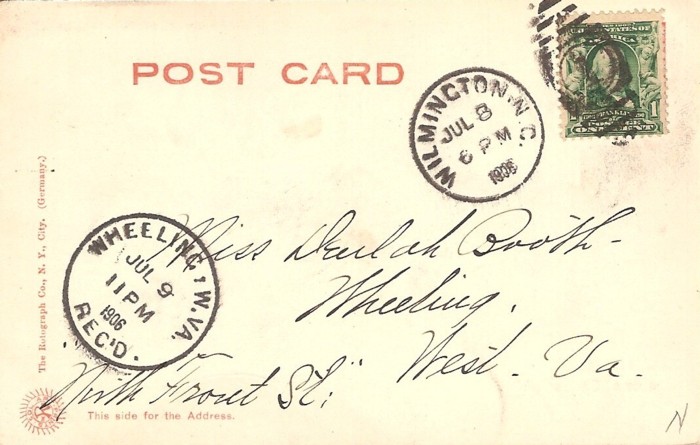 POST CARD
WILMINGTON. N.C.
JUL 8
6 PM
1906
SERIES 1902
STATES OF
AMERICA
FRANKLIN
POSTAGE
1
ONE CENT
WHEELING, W.VA.
JUL 9
11 PM
1906
REC'D.
Miss Beulah Booth-
Wheeling.
West. Va.
"North Front St."
The Rotograph Co., N. Y., City. (Germany.)
This side for the Address.
N